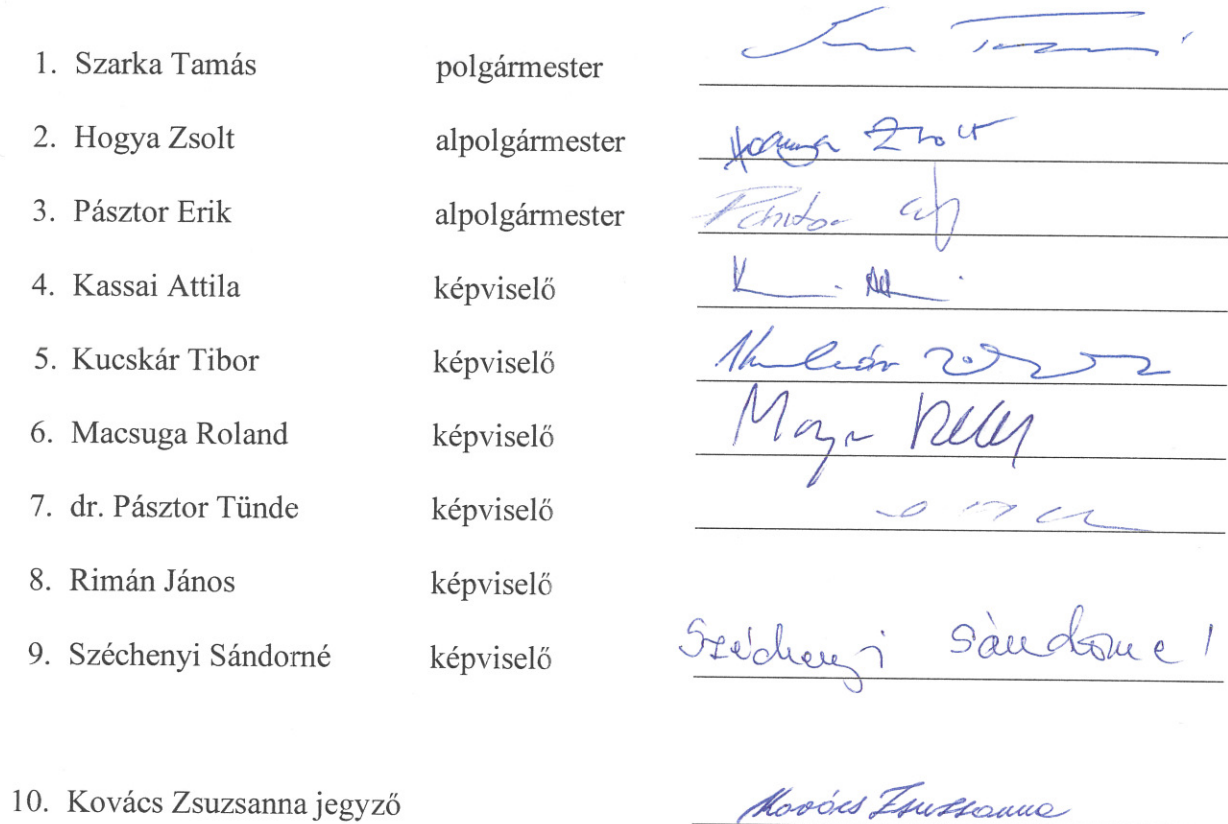 1. Szarka Tamás polgármester
2. Hogya Zsolt alpolgármester Zsolt
3. Pásztor Erik alpolgármester
4. Kassai Attila képviselő
5. Kucskár Tibor képviselő
6. Macsuga Roland képviselő
7. dr. Pásztor Tünde képviselő
8. Rimán János képviselő
9. Széchenyi Sándorné képviselő Széchenyi Sándorné
10. Kovács Zsuzsanna jegyző Kovács Zsuzsanna